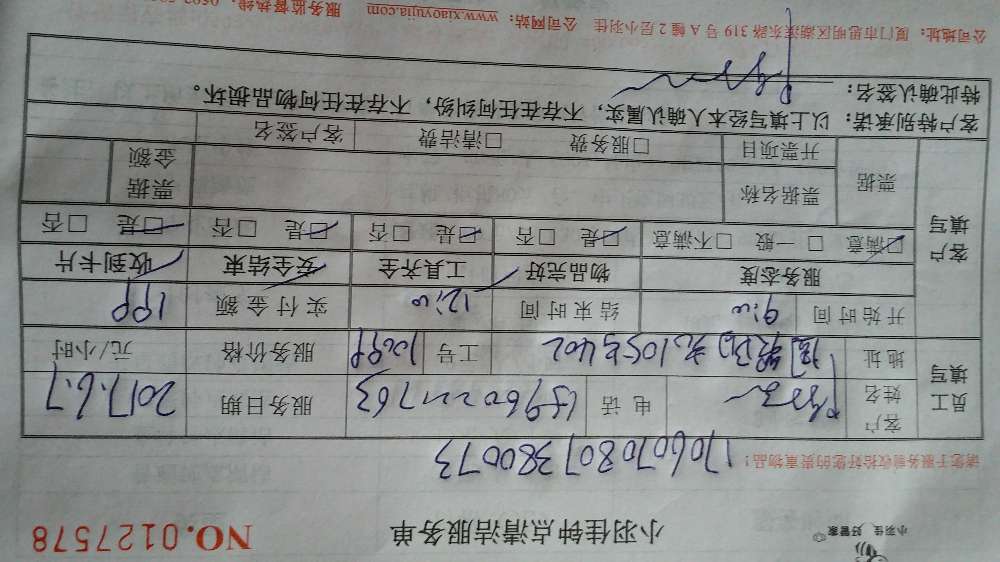 小羽佳 好管家
小羽佳钟点清洁服务单
NO.0127578
请您于服务前收拾好您的贵重物品!
170607080738007３
员工填写
客户姓名
电话
服务日期
2017.6.7
地址
工号
服务价格
元/小时
开始时间
9:00
结束时间
12:00
实付金额
199
客户填写
服务态度
物品完好
工具齐全
安全结束
收到卡片
满意 □一般 □不满意
是 □否
是 □否
是 □否
是 □否
票据
票据名称
票据金额
开票项目
□服务费 □清洁费
客户签名
客户特别承诺:以上填写经本人确认属实,不存在任何纠纷,不存在任何物品损坏。
特此确认签名:
公司地址:厦门市思明区湖滨东路319号A幢2层小羽佳 公司网站:www.xiaoyujia.com 服务监督热线:0592